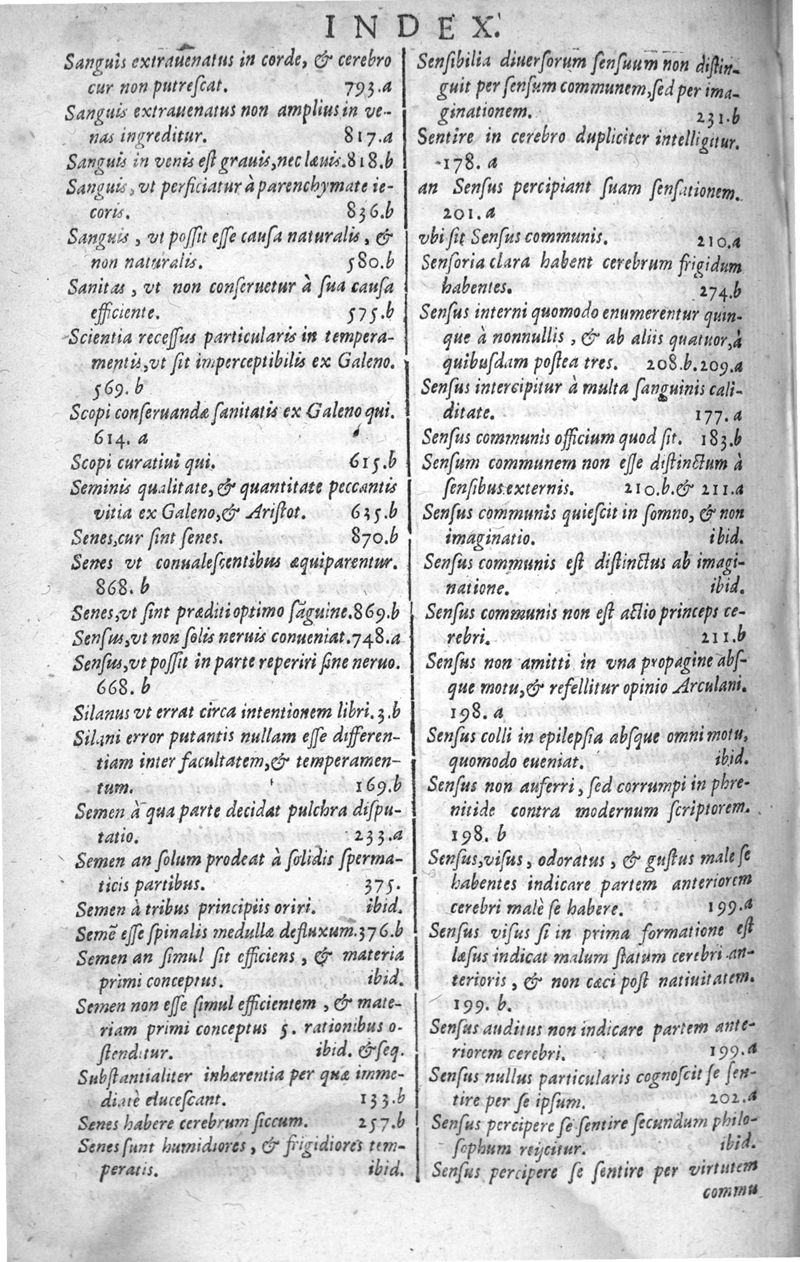 INDEX.
Sanguis extrauenatus in corde, & cerebro
cur non putreſcat. 793.a
Sanguis extrauenatus non amplius in ve-
nas ingreditur. 817.a
Sanguis in venis eſt grauis, nec læuis. 818.b
Sanguis, vt perficiatur à parenchymate ie-
coris. 836.b
Sanguis, vt poſſit eſſe cauſa naturalis, &
non naturalis. 580.b
Sanitas, vt non conſeruetur à ſua cauſa
efficiente. 575.b
Scientia receſſus particularis in tempera-
mentis, vt ſit imperceptibilis ex Galeno.
569. b
Scopi conſeruandæ ſanitatis ex Galeno qui.
614. a
Scopi curatiui qui. 615.b
Seminis qualitate, & quantitate peccantis
vitia ex Galeno, & Ariſtot. 635.b
Senes, cur ſint ſenes. 870.b
Senes vt conualeſcentibus æquiparentur.
868. b
Senes, vt ſint præditi optimo ſãguine. 869.b
Senſus, vt non ſolis neruis conueniat. 748.a
Senſus, vt poſſit in parte reperiri ſine neruo.
668. b
Silanus vt errat circa intentionem libri. 3.b
Silani error putantis nullam eſſe differen-
tiam inter facultatem, & temperamen-
tum. 169.b
Semen à qua parte decidat pulchra diſpu-
tatio. 233.a
Semen an ſolum prodeat à ſolidis ſperma-
ticis partibus. 375.
Semen à tribus principiis oriri. ibid.
Semẽ eſſe ſpinalis medullæ defluxum. 376.b
Semen an ſimul ſit efficiens, & materia
primi conceptus. ibid.
Semen non eſſe ſimul efficientem, & mate-
riam primi conceptus 5. rationibus o-
ſtenditur. ibid. & ſeq.
Subſtantialiter inhærentia per quæ imme-
diatè eluceſcant. 133.b
Senes habere cerebrum ſiccum. 257.b
Senes ſunt humidiores, & frigidiores tem-
peratis. ibid.
Senſibilia diuerſorum ſenſuum non diſtin-
guit per ſenſum communem, ſed per ima-
ginationem. 231.b
Sentire in cerebro dupliciter intelligitur.
178. a
an Senſus percipiant ſuam ſenſationem.
201. a
vbi ſit Senſus communis. 210.a
Senſoria clara habent cerebrum frigidum
habentes. 274.b
Senſus interni quomodo enumerentur quin-
que à nonnullis, & ab aliis quatuor, à
quibuſdam poſtea tres. 208.b. 209.a
Senſus intercipitur à multa ſanguinis cali-
ditate. 177.a
Senſus communis officium quod ſit. 183.b
Senſum communem non eſſe diſtinctum à
ſenſibus externis. 210.b. & 211.a
Senſus communis quieſcit in ſomno, & non
imaginatio. ibid.
Senſus communis eſt diſtinctus ab imagi-
natione. ibid.
Senſus communis non eſt actio princeps ce-
rebri. 211.b
Senſus non amitti in vna propagine abſ-
que motu, & refellitur opinio Arculani.
198. a
Senſus colli in epilepſia abſque omni motu,
quomodo eueniat. ibid.
Senſus non auferri, ſed corrumpi in phre-
nitide contra modernum ſcriptorem.
198. b
Senſus, viſus, odoratus, & guſtus male ſe
habentes indicare partem anteriorem
cerebri malè ſe habere. 199.a
Senſus viſus ſi in prima formatione eſt
læſus indicat malum ſtatum cerebri an-
terioris, & non cæci poſt natiuitatem.
199. b.
Senſus auditus non indicare partem ante-
riorem cerebri. 199.a
Senſus nullus particularis cognoſcit ſe ſen-
tire per ſe ipſum. 202.a
Senſus percipere ſe ſentire ſecundum philo-
ſophum reijcitur. ibid.
Senſus percipere ſe ſentire per virtutem
commu